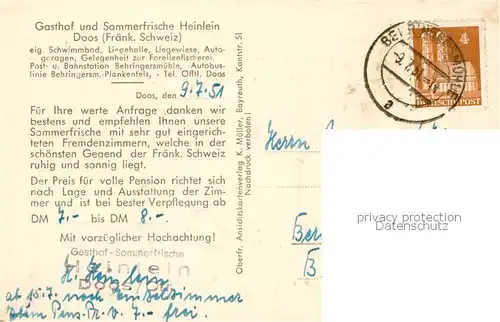 Gasthof und Sommerfrische Heinlein
Doos (Fränk. Schweiz)
eig. Schwimmbad, Liegehalle, Liegewiese, Auto-
garagen, Gelegenheit zur Forellenfischerei.
Post- u. Bahnstation Behringersmühle, Autobus-
linie Behringersm.-Plankenfels, - Tel. Öfftl. Doos
Doos, den 9.7.51
Für Ihre werte Anfrage danken wir
bestens und empfehlen Ihnen unsere
Sommerfrische mit sehr gut eingerich-
teten Fremdenzimmern, welche in der
schönsten Gegend der Fränk. Schweiz
ruhig und sonnig liegt.
Der Preis für volle Pension richtet sich
nach Lage und Ausstattung der Zim-
mer und ist bei bester Verpflegung ab
DM 7.- bis DM 8.-
Mit vorzüglicher Hochachtung!
Gasthof-Sommerfrische
Heinlein
Doos
H. Heinlein
ab 15.7. noch Einzelzimmer
Pens. Pr. v. 7.- frei.
Oberfr. Ansichtskartenverlag K. Müller, Bayreuth, Kantstr. 51
Nachdruck verboten
4
DEUTSCHE POST
a
Herrn
privacy protection
Datenschutz
Ber
B